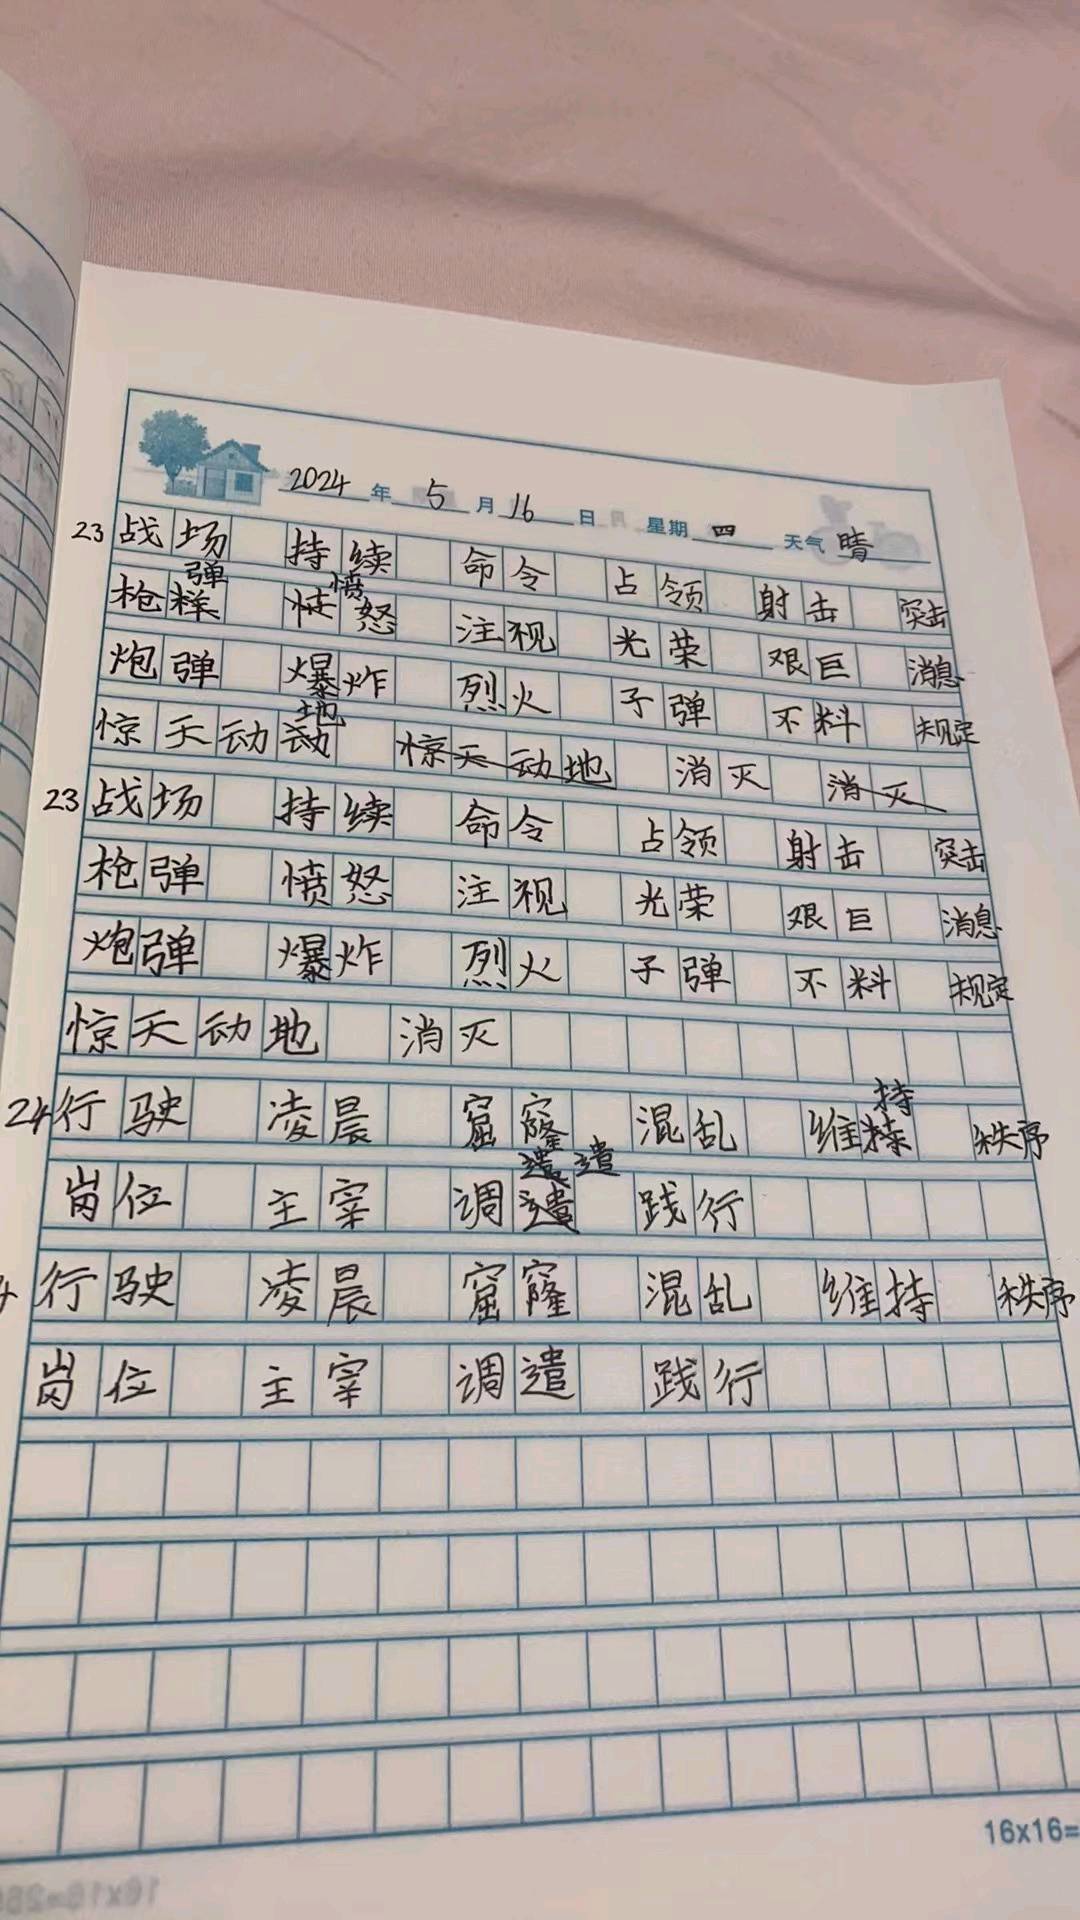 2024 年 5 月 16 日 星期 四 天气 晴
23 战场 持续 命令 占领 射击 突击
弹 愤
枪 怒 注视 光荣 艰巨 消息
炮弹 爆炸 烈火 子弹 不料 规定
地
惊天动动 惊天动地 消灭 消灭
23 战场 持续 命令 占领 射击 突击
枪弹 愤怒 注视 光荣 艰巨 消息
炮弹 爆炸 烈火 子弹 不料 规定
惊天动地 消灭
持
24 行驶 凌晨 窟窿 混乱 维 秩序
遣 遣
岗位 主宰 调遣 践行
行驶 凌晨 窟窿 混乱 维持 秩序
岗位 主宰 调遣 践行
16x16=